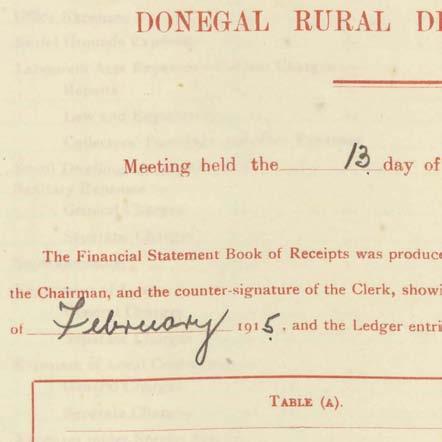 DONEGAL RURAL DI
Meeting held the 13 day of
The Financial Statement Book of Receipts was produce
the Chairman, and the counter-signature of the Clerk, showi
of February 1915, and the Ledger entri
TABLE (A).